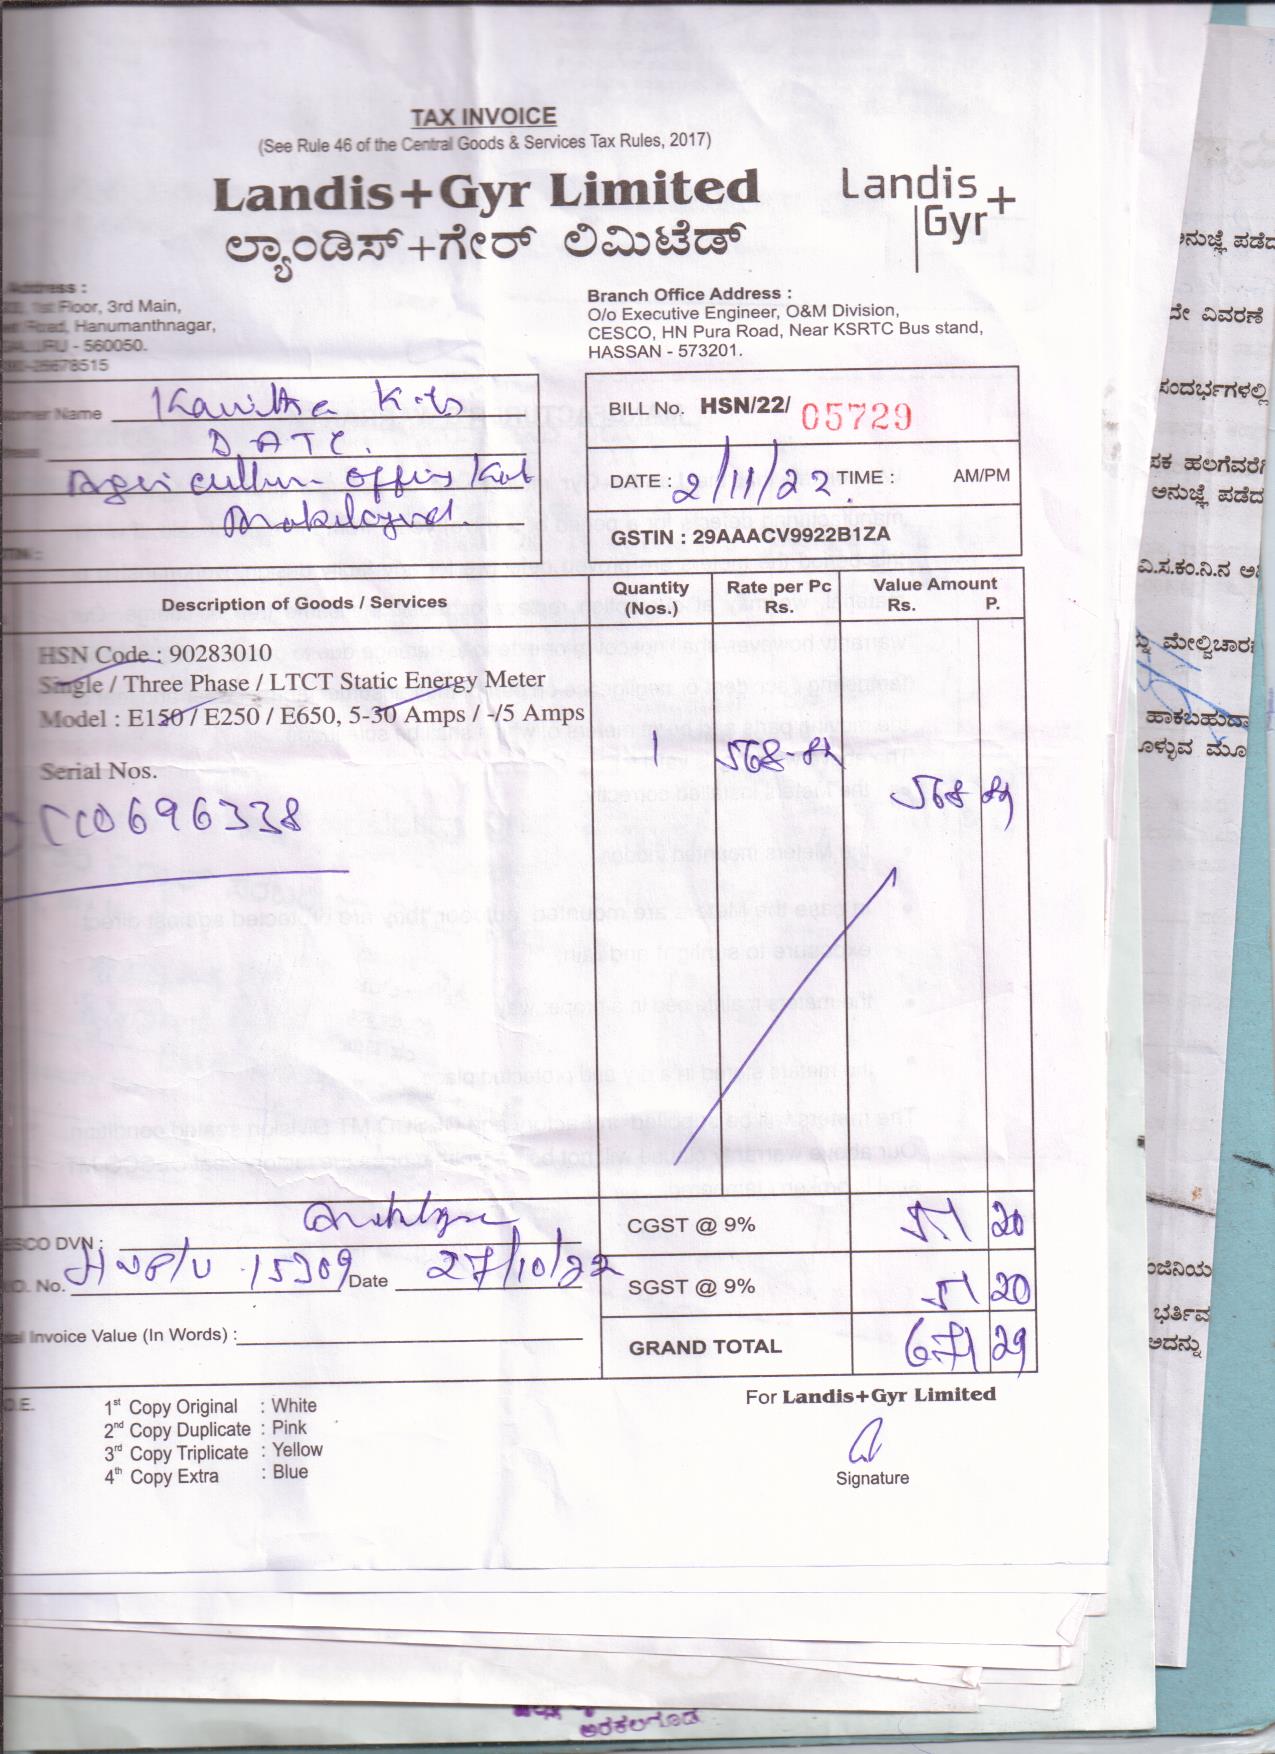 TAX INVOICE
(See Rule 46 of the Central Goods & Services Tax Rules, 2017)
Landis+Gyr Limited
ಲ್ಯಾಂಡಿಸ್+ಗೇರ್ ಲಿಮಿಟೆಡ್
Landis
Gyr+
Address :
1st Floor, 3rd Main,
Road, Hanumanthnagar,
- 560050.
Branch Office Address :
O/o Executive Engineer, O&M Division,
CESCO, HN Pura Road, Near KSRTC Bus stand,
HASSAN - 573201.
Name Kavitha
D A T C.
BILL No. HSN/22/ 05729
DATE : 2/11/22. TIME : AM/PM
GSTIN : 29AAACV9922B1ZA
Description of Goods / Services
Quantity (Nos.)
Rate per Pc Rs.
Value Amount Rs. P.
HSN Code : 90283010
Single / Three Phase / LTCT Static Energy Meter
Model : E150 / E250 / E650, 5-30 Amps / -/5 Amps
1 568-89 568 89
Serial Nos.
696338
DVN :
No. 15309 Date 27/10/22
Invoice Value (In Words) :
CGST @ 9% 51 20
SGST @ 9% 51 20
GRAND TOTAL 671 29
1st Copy Original : White
2nd Copy Duplicate : Pink
3rd Copy Triplicate : Yellow
4th Copy Extra : Blue
For Landis+Gyr Limited
Signature
ಅನುಜ್ಞೆ ಪಡೆದ
ವಿವರಣೆ
ಸಂದರ್ಭಗಳಲ್ಲಿ
ಅನುಜ್ಞೆ ಪಡೆದ
ವಿ.ಸ.ಕಂ.ನಿ.ನ
ಹಾಕಬಹುದಾ
ಅದನ್ನು
ಅರಕಲಗೂಡ